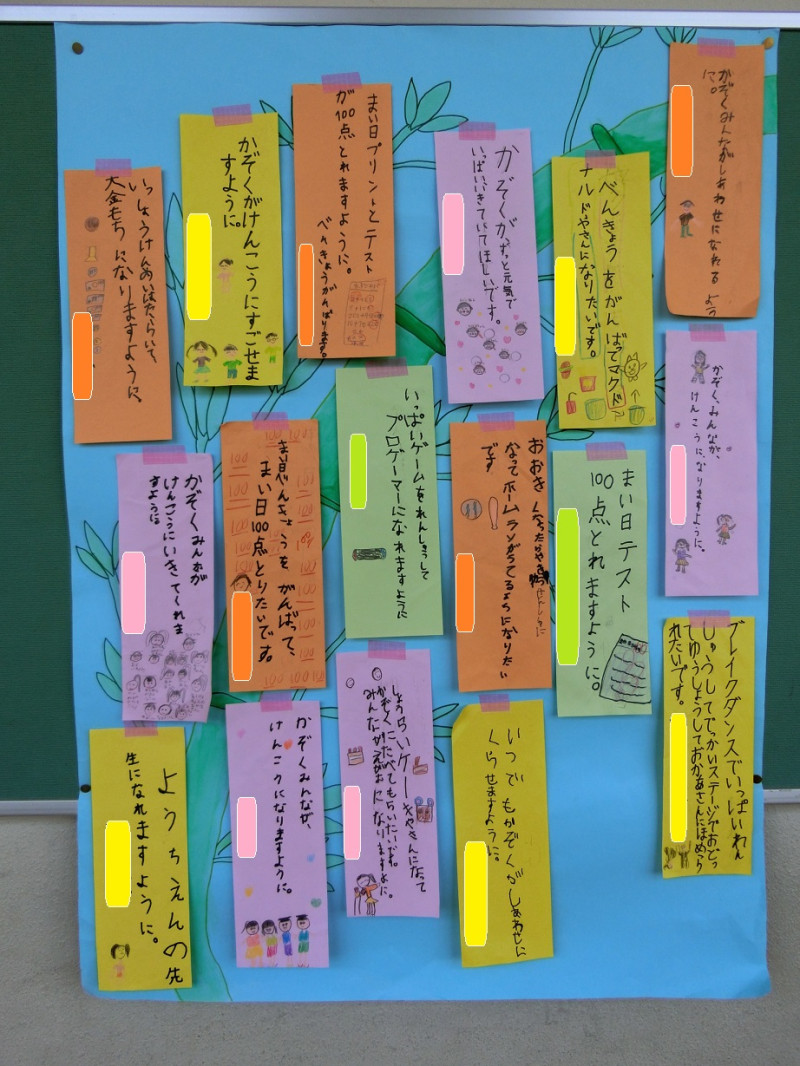 かぞくみんながしあわせになれるよう
に。
べんきょうをがんばってマクド
ナルドやさんになりたいです。
かぞくがずっと元気で
いっぱいいきていてほしいです。
まい日プリントとテスト
が100点とれますように。
べんきょうがんばります。
かぞくがけんこうにすごせま
すように。
いっしょうけんめいはたらいて、
大金もちになりますように、
かぞく、みんなが、
けんこうに、なりますように。
まい日テスト
100点とれますように。
おおきくなったらやきゅう
なってホームランがうてるようになりたい
です
いっぱいゲームをれんしゅうして
プロゲーマーになれますように
まい日べんきょうをがんばって、
まい日100点とりたいです。
かぞくみんなが
けんこうにいきてくれま
すように
ブレイクダンスでいっぱいれん
しゅうしてでっかいステージでおどっ
てゆうしょうしておかあさんにほめら
れたいです。
いつでもかぞくがしあわせに
くらせますように。
しょうらいケーキやさんになって
かぞくにたべてもらいたいです。
みんながえがおになりますように。
かぞくみんなが、
けんこうになりますように。
ようちえんの先
生になれますように。